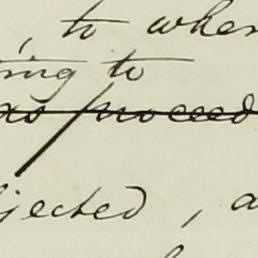 , to when
ing to
as proceed
jected, a